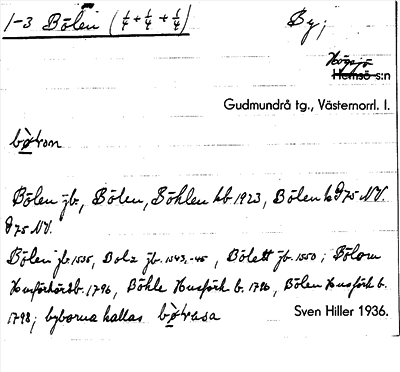 1-3 Bölen (1/4 + 1/4 + 1/4) By;
Högsjö
Hemsö s:n
Gudmundrå tg., Västernorrl. l.
Bölen jb., Bölen, Böhlen kb 1923, Bölen k 975 NV.
975 NV.
Bölen jb 1535, Bola jb. 1543-45, Bölett jb. 1550; Bölom
Husförhörsb. 1796, Böhle Husförh b. 1786, Bölen Husförh b.
1798; byborna kallas
Sven Hiller 1936.